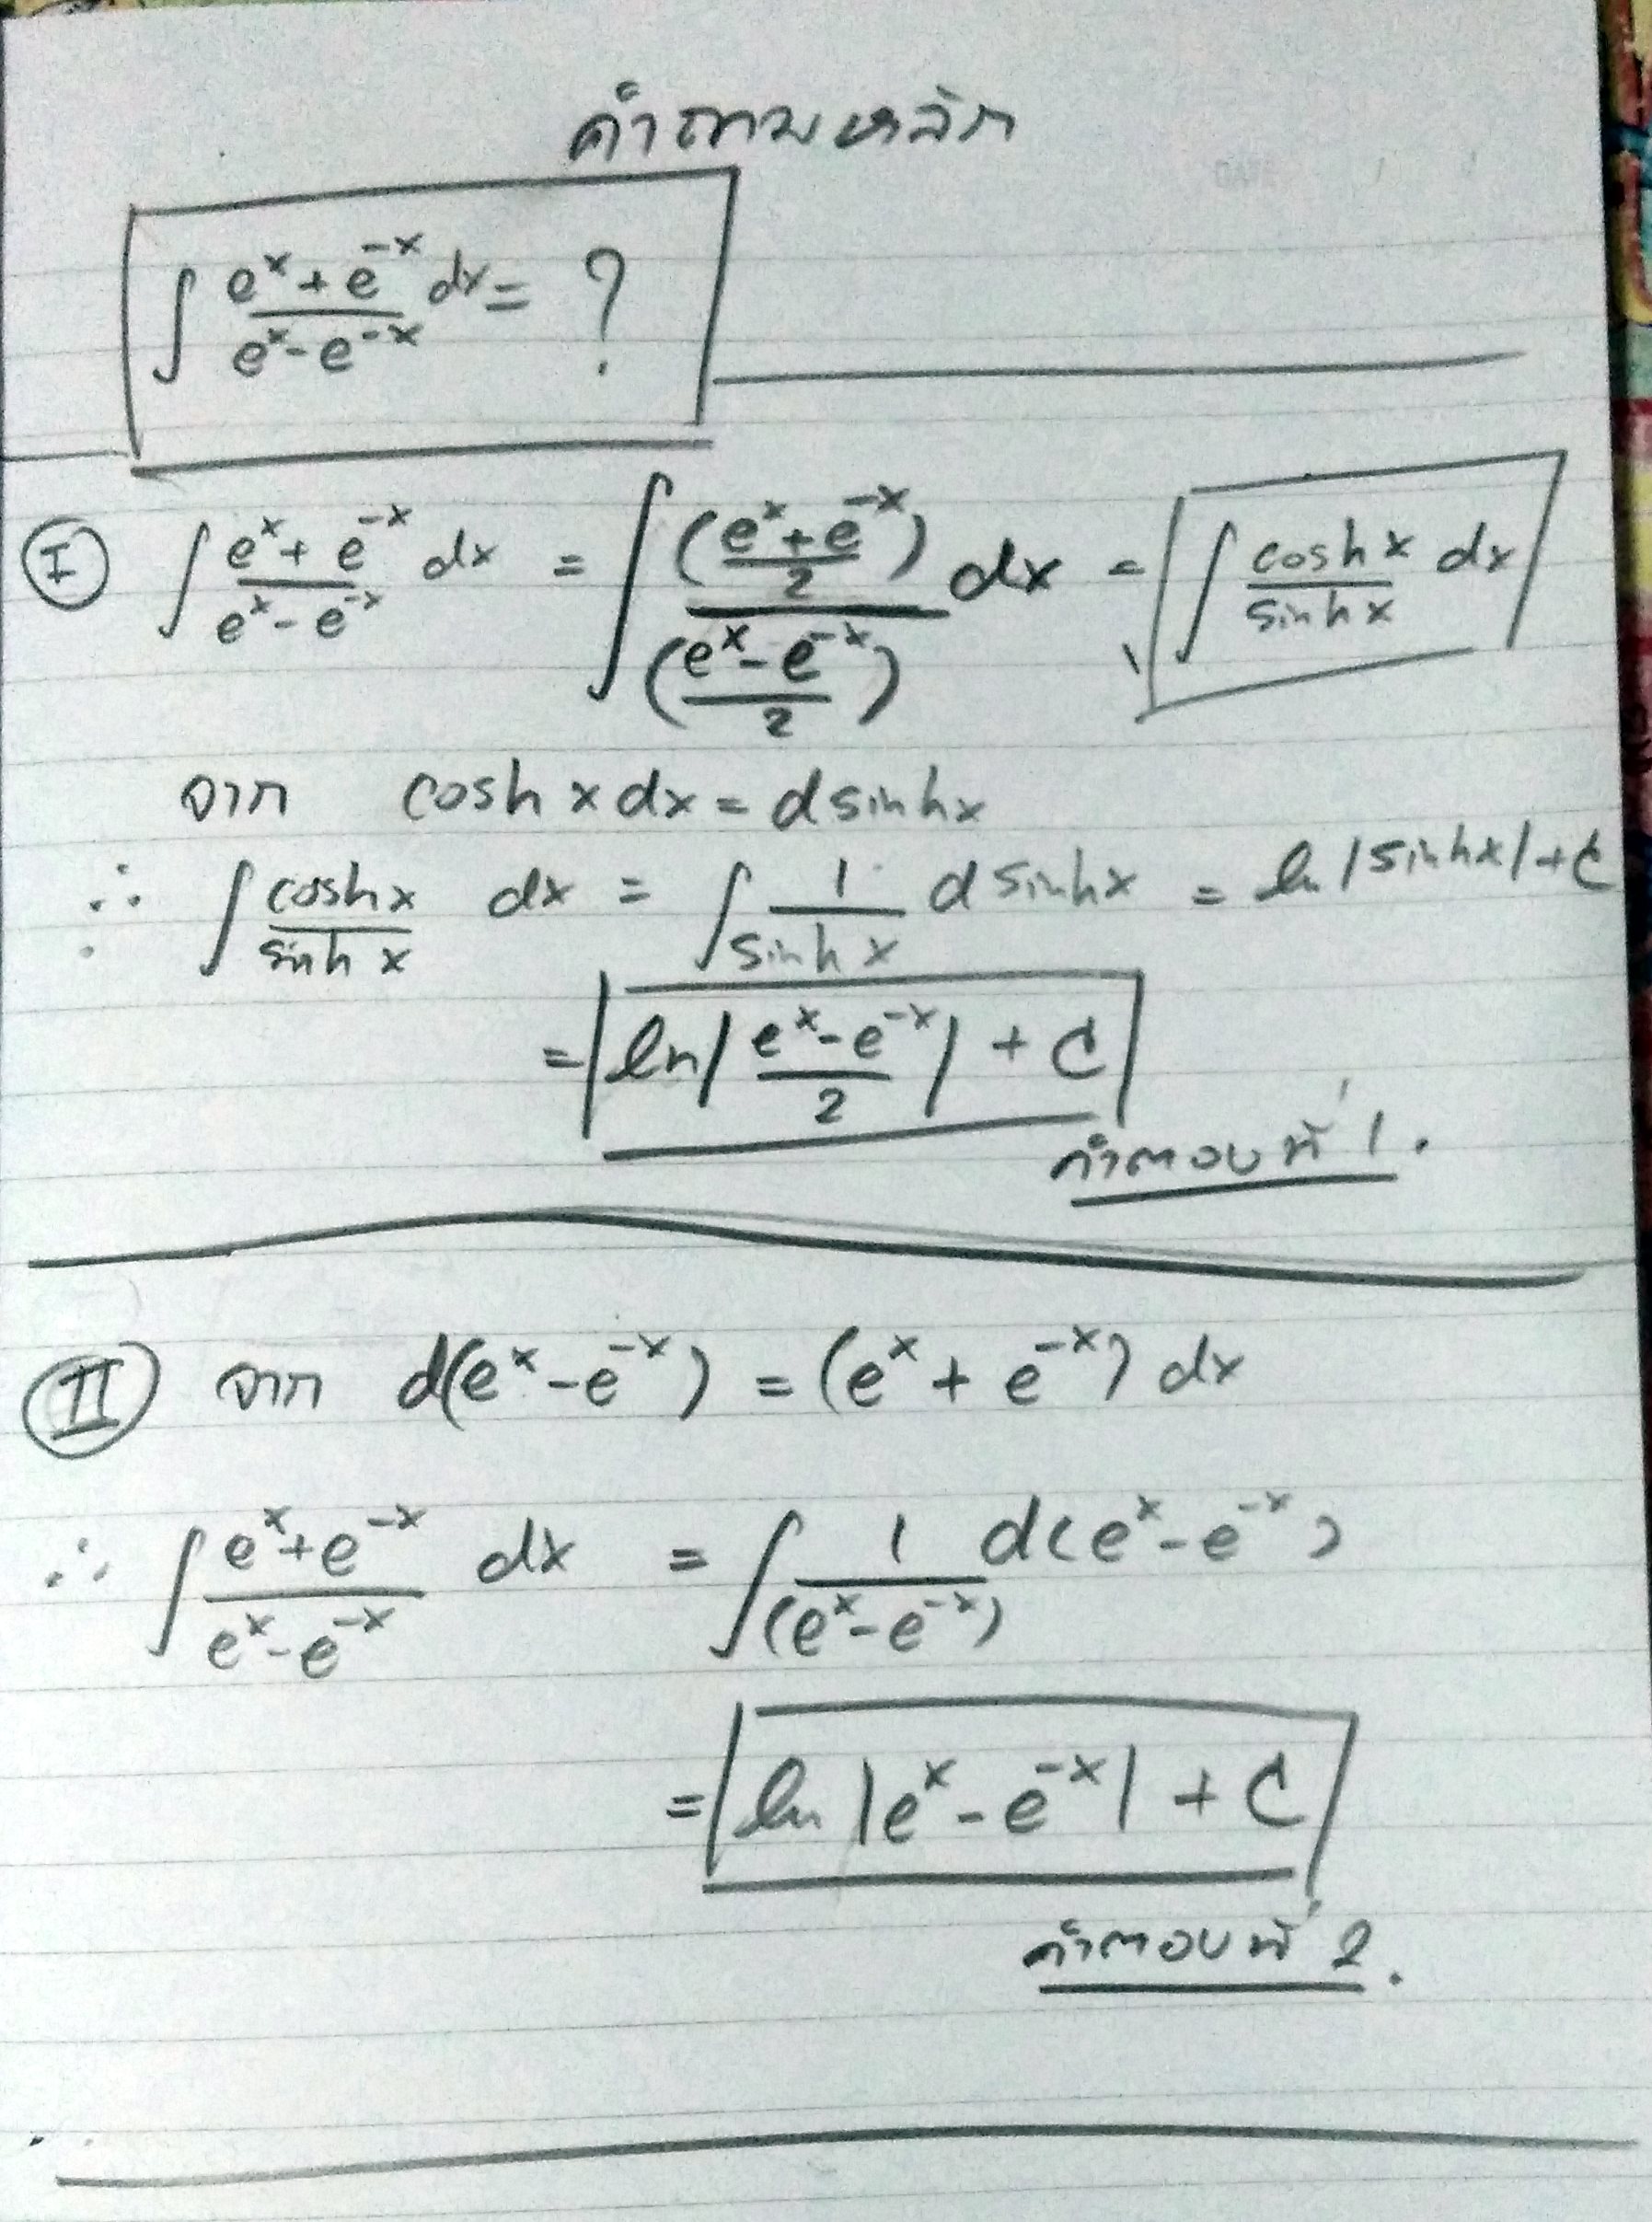 คำถามหลัก
∫ (e^x + e^-x)/(e^x - e^-x) dx = ?
I ∫ (e^x + e^-x)/(e^x - e^-x) dx = ∫ ((e^x + e^-x)/2)/((e^x - e^-x)/2) dx = ∫ cosh x/sinh x dx
จาก cosh x dx = d sinh x
∴ ∫ cosh x/sinh x dx = ∫ 1/sinh x d sinh x = ln |sinh x| + C
= ln |(e^x - e^-x)/2| + C
คำตอบที่ 1.
II จาก d(e^x - e^-x) = (e^x + e^-x) dx
∴ ∫ (e^x + e^-x)/(e^x - e^-x) dx = ∫ 1/(e^x - e^-x) d(e^x - e^-x)
= ln |e^x - e^-x| + C
คำตอบที่ 2.